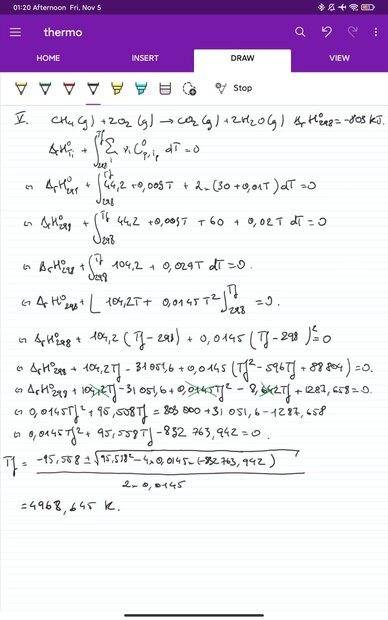 01:20 Afternoon Fri, Nov 5
thermo
HOME INSERT DRAW VIEW
Stop
V. CH₄(g) + 2O₂(g) → CO₂(g) + 2H₂O(g) ΔrH°298 = -803 KJ.
ΔrH°Ti + ∫298^Tf Σi νi C°p,i dT = 0
⇔ ΔrH°298 + ∫298^Tf 44,2 + 0,009T + 2×(30+0,01T) dT = 0
⇔ ΔrH°298 + ∫298^Tf 44,2 + 0,009T + 60 + 0,02T dT = 0
⇔ ΔrH°298 + ∫298^Tf 104,2 + 0,029T dT = 0.
⇔ ΔrH°298 + [104,2T + 0,0145T²]298^Tf = 0.
⇔ ΔrH°298 + 104,2(Tf - 298) + 0,0145(Tf - 298)² = 0
⇔ ΔrH°298 + 104,2Tf - 31051,6 + 0,0145(Tf² - 596Tf + 88804) = 0.
⇔ ΔrH°298 + 104,2Tf - 31051,6 + 0,0145Tf² - 8,642Tf + 1287,658 = 0.
⇔ 0,0145Tf² + 95,558Tf = 803000 + 31051,6 - 1287,658
⇔ 0,0145Tf² + 95,558Tf - 832 763,942 = 0.
Tf = -95,558 ± √95,558² - 4×0,0145×(-832763,942)
2×0,0145
= 4968,645 K.